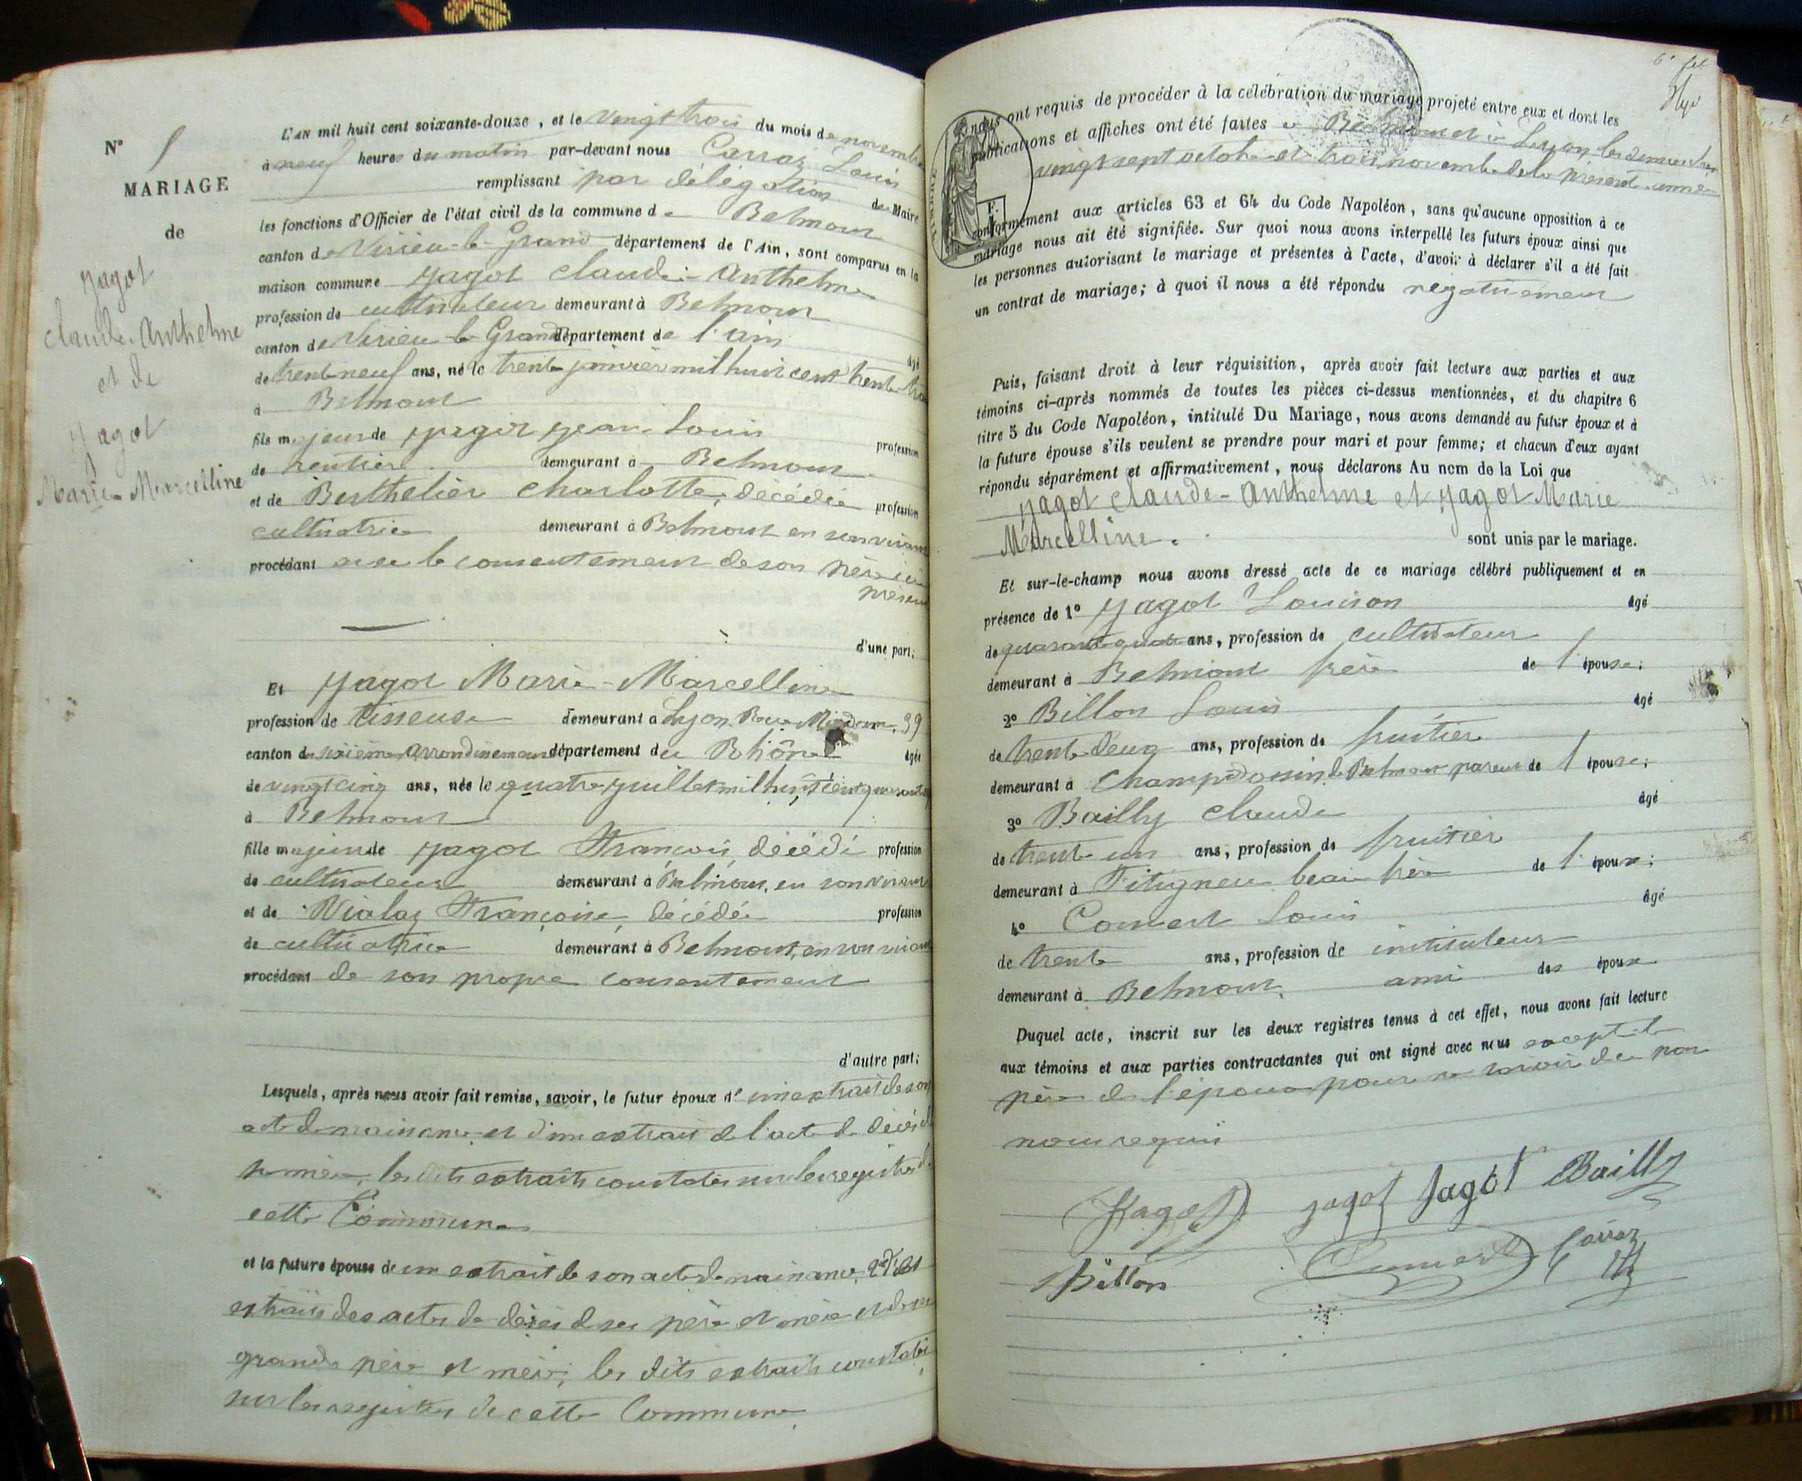 N° 1
MARIAGE
de
Jagot
Claude-Anthelme
et de
Jagot
Marie-Marcelline
L'AN mil huit cent soixante-douze, et le vingt trois du mois de novembre
à neuf heures du matin par-devant nous Carraz Louis
remplissant par délégation de Maire
les fonctions d'Officier de l'état civil de la commune de Belmont
canton de Virieu-le-Grand département de l'Ain, sont comparus en la
maison commune Jagot Claude-Anthelme
profession de cultivateur demeurant à Belmont
canton de Virieu-le-Grand département de l'Ain âgé
de trente neuf ans, né le trente janvier mil huit cent trente trois
à Belmont
fils majeur de Jagot Jean-Louis profession
de rentier demeurant à Belmont
et de Berthelier Charlotte, décédée profession
cultivatrice demeurant à Belmont en son vivant
procédant avec le consentement de son père ici
présent
d'une part;
Et Jagot Marie-Marcelline
profession de tisseuse demeurant à Lyon Rue 39
canton du sixième arrondissement département du Rhône âgée
de vingt cinq ans, née le quatre juillet mil huit cent quarante sept
à Belmont
fille majeure de Jagot François, décédé profession
de cultivateur demeurant à Belmont, en son vivant
et de Vialaz Françoise, décédée profession
de cultivatrice demeurant à Belmont, en son vivant
procédant de son propre consentement
d'autre part;
Lesquels, après nous avoir fait remise, savoir, le futur époux d'un extrait de son
acte de naissance et d'un extrait de l'acte de décès de
sa mère, les dits extraits constatés sur les registres de
cette Commune
et la future épouse de un extrait de son acte de naissance,
extraits des actes de décès de ses père et mère et de ses
grands père et mère; les dits extraits constatés
sur les registres de cette Commune
nous ont requis de procéder à la célébration du mariage projeté entre eux et dont les
publications et affiches ont été faites à Belmont et à Lyon les dimanches
vingt sept octobre et trois novembre de la présente année
conformément aux articles 63 et 64 du Code Napoléon, sans qu'aucune opposition à ce
mariage nous ait été signifiée. Sur quoi nous avons interpellé les futurs époux ainsi que
les personnes autorisant le mariage et présentes à l'acte, d'avoir à déclarer s'il a été fait
un contrat de mariage; à quoi il nous a été répondu négativement
Puis, faisant droit à leur réquisition, après avoir fait lecture aux parties et aux
témoins ci-après nommés de toutes les pièces ci-dessus mentionnées, et du chapitre 6
titre 5 du Code Napoléon, intitulé Du Mariage, nous avons demandé au futur époux et à
la future épouse s'ils veulent se prendre pour mari et pour femme; et chacun d'eux ayant
répondu séparément et affirmativement, nous déclarons Au nom de la Loi que
Jagot Claude-Anthelme et Jagot Marie
Marcelline. sont unis par le mariage.
Et sur-le-champ nous avons dressé acte de ce mariage célébré publiquement et en
présence de 1° Jagot Louison âgé
de quarante quatre ans, profession de cultivateur
demeurant à Belmont frère de l'épouse;
2° Billon Louis âgé
de trente-deux ans, profession de fruitier
demeurant à Champdossin de Belmont parent de l'épouse;
3° Bailly Claude âgé
de trente un ans, profession de fruitier
demeurant à Fitignieu beau frère de l'épouse;
4° Comert Louis âgé
de trente ans, profession de instituteur
demeurant à Belmont, ami des époux
Duquel acte, inscrit sur les deux registres tenus à cet effet, nous avons fait lecture
aux témoins et aux parties contractantes qui ont signé avec nous excepté le
père de l'époux pour ne savoir de ce non
nous requis
Jagot Jagot Jagot Bailly
Billon Comert Carraz